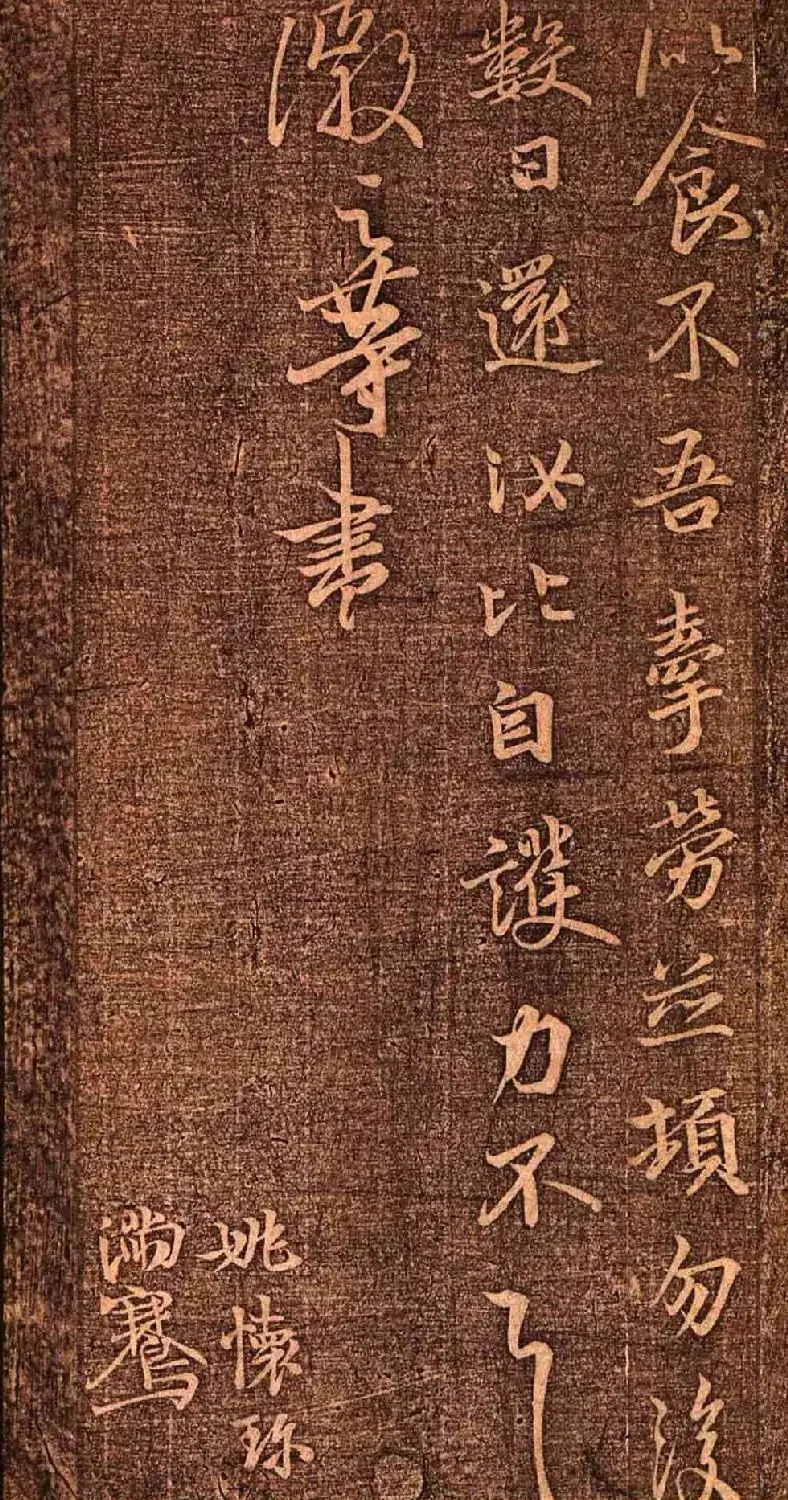 似食不吾牽勞並頓勿復
數日還汝比自護力不具
徽之等書
姚懷珍
滿騫